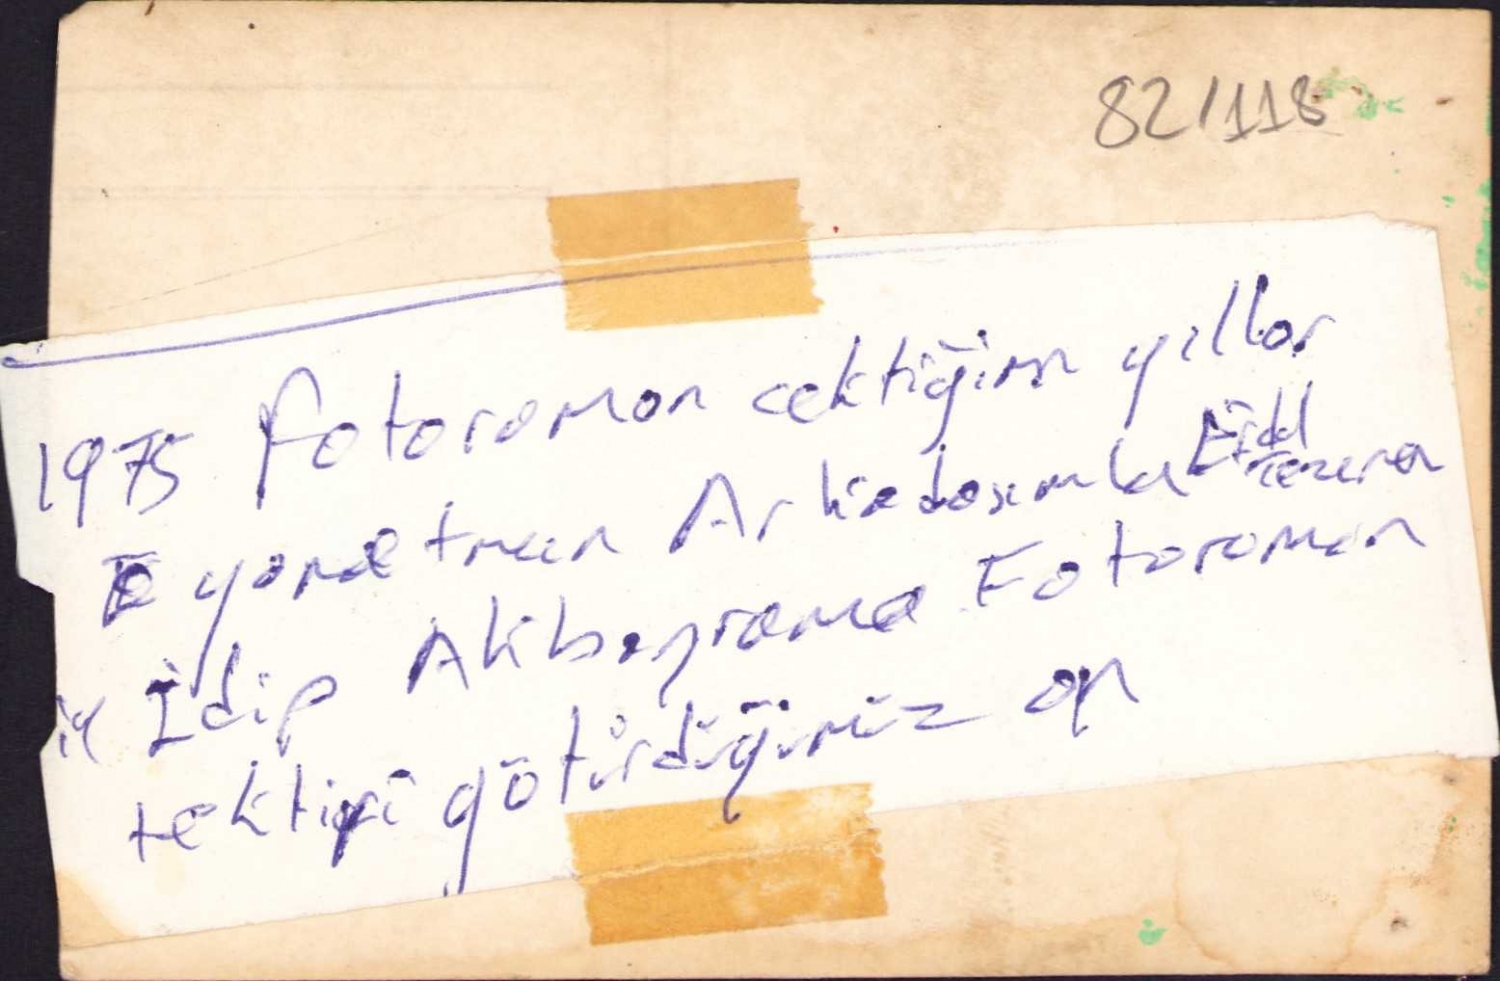 82/118
1975 fotoroman cektiğim yıllar
yonetmen Arkadosımla
İdip Akbayrama Fotoroman
tektifi götürdüğümüz on